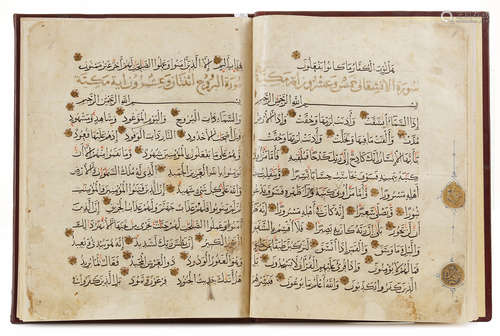 هل ثوب الكفار ما كانوا يفعلون
سورة الانشقاق خمس وعشرون اية مكية
بسم الله الرحمن الرحيم
اذا السماء انشقت واذنت لربها وحقت واذا الارض
مدت والقت ما فيها وتخلت واذنت لربها وحقت يا
ايها الانسان انك كادح الى ربك كدحا فملاقيه فاما من اوتي
كتابه بيمينه فسوف يحاسب حسابا يسيرا وينقلب الى اهله
مسرورا واما من اوتي كتابه وراء ظهره فسوف يدعو
ثبورا ويصلى سعيرا انه كان في اهله مسرورا انه
ظن ان لن يحور بلى ان ربه كان به بصيرا فلا اقسم بالشفق
والليل وما وسق والقمر اذا اتسق لتركبن طبقا عن طبق
فما لهم لا يؤمنون واذا قرئ عليهم القران لا يسجدون بل
الذين كفروا يكذبون والله اعلم بما يوعون فبشرهم
بعذاب اليم الا الذين امنوا وعملوا الصالحات لهم اجر غير ممنون
سورة البروج اثنتان وعشرون اية مكية
بسم الله الرحمن الرحيم
والسماء ذات البروج واليوم الموعود وشاهد ومشهود
قتل اصحاب الاخدود النار ذات الوقود اذ هم عليها قعود
وهم على ما يفعلون بالمؤمنين شهود وما نقموا منهم الا ان
يؤمنوا بالله العزيز الحميد الذي له ملك السموات والارض
والله على كل شيء شهيد ان الذين فتنوا المؤمنين والمؤمنات
ثم لم يتوبوا فلهم عذاب جهنم ولهم عذاب الحريق ان الذين
امنوا وعملوا الصالحات لهم جنات تجري من تحتها الانهار ذلك الفوز
الكبير ان بطش ربك لشديد انه هو يبدئ ويعيد
وهو الغفور الودود ذو العرش المجيد فعال لما يريد
هل اتاك حديث الجنود فرعون وثمود بل الذين كفروا